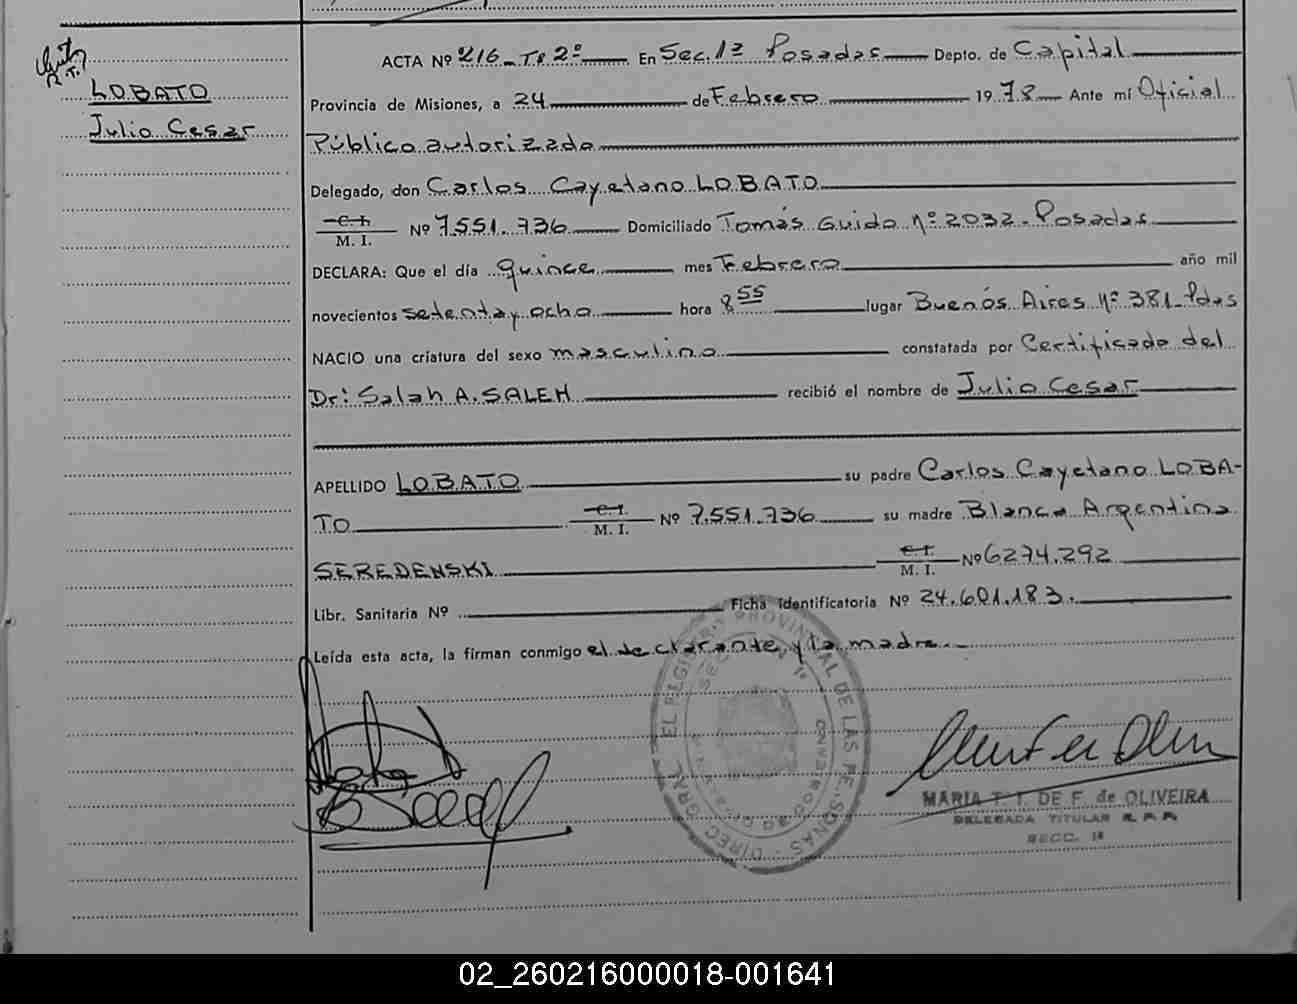 LOBATO
Julio Cesar
ACTA Nº 216 - Tº 2º En Sec. 1ª Posadas Depto. de Capital
Provincia de Misiones, a 24 de Febrero 1978 Ante mí Oficial
Público autorizado
Delegado, don Carlos Cayetano LOBATO
C. I.
M. I. Nº 7.551.736 Domiciliado Tomás Guido nº 2032 - Posadas
DECLARA: Que el día quince mes Febrero año mil
novecientos setenta y ocho hora 8 55 lugar Buenos Aires nº 381 - Pdas
NACIO una criatura del sexo masculino constatada por Certificado del
Dr: Salah A. SALEH recibió el nombre de Julio Cesar
APELLIDO LOBATO su padre Carlos Cayetano LOBA-
TO C. I. M. I. Nº 7.551.736 su madre Blanca Argentina
SEREDENSKI C. I. M. I. Nº 6274.292
Libr. Sanitaria Nº Ficha Identificatoria Nº 24.601.183.
Leída esta acta, la firman conmigo el declarante, y la madre.-
MARIA T. T. DE F. de OLIVEIRA
DELEGADA TITULAR R. P. P.
SECC. 1ª
02_260216000018-001641